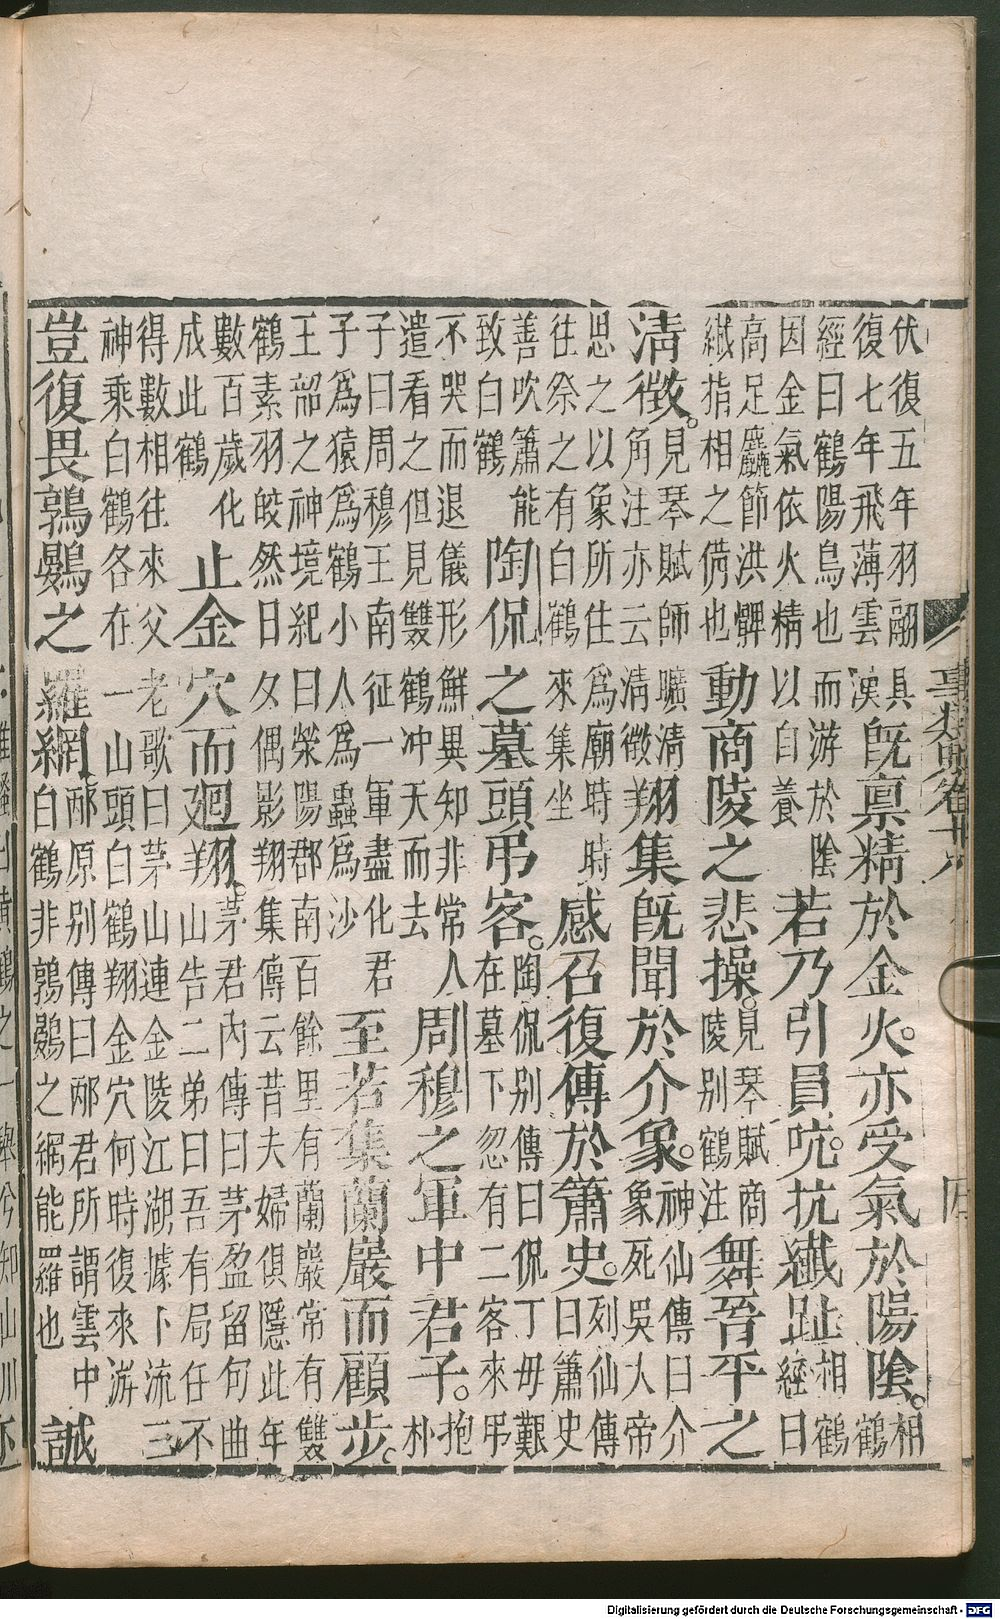 伏復五年羽翮具
復七年飛薄雲漢
旣禀精於金火。亦受氣於陽陰。
相
鶴
經曰鶴陽鳥也而游於陰
因金氣依火精以自養
若乃引員吭。抗纎趾
相鶴
經曰
高足麤節洪髀
纎指相之俻也
動商陵之悲操。
見琴賦商
陵别鶴注
舞晉平之
清徴。
見琴賦師曠清
角注亦云清徴
翔集旣聞於介象。
神仙傳曰介
象死吳大帝
思之以象所住為廟時時
往祭之有白鶴來集坐
感召復傳於簫史。
列仙傳
曰簫史
善吹簫能
致白鶴
陶侃之墓頭弔客。
陶侃别傳曰侃丁毋艱
在墓下忽有二客來弔
不哭而退儀形鮮異知非常人
遣看之但見雙鶴冲天而去
周穆之軍中君子。
抱
朴
子曰周穆王南征一軍盡化君
子為猿為鶴小人為蟲為沙
至若集蘭巖而顧步。
王韶之神境紀曰滎陽郡南百餘里有蘭巖常有雙
鶴素羽皎然日夕偶影翔集傳云昔夫婦俱隱此年
數百歲化
成此鶴
止金穴而廻翔。
茅君内傳曰茅盈留句曲
山告二弟曰吾有局任不
得數相往來父老歌曰茅山連金陵江湖據下流三
神乘白鶴各在一山頭白鶴翔金穴何時復來游
豈復畏鶉鷃之羅網
邴原别傳曰邴君所謂雲中
白鶴非鶉鷃之網能羅也
誠
事類賦卷十八
四
黃鶴之一舉兮知山川
Digitalisierung gefördert durch die Deutsche Forschungsgemeinschaft - DFG